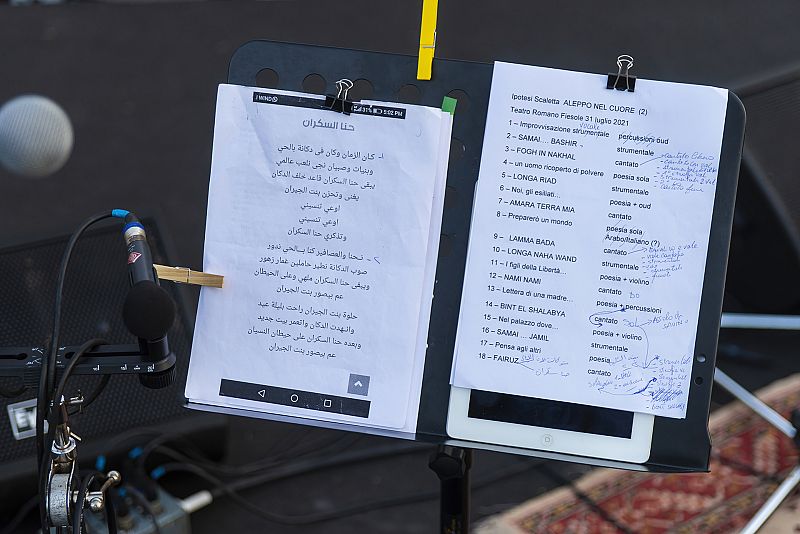 WIND
31% 5:02 PM
حنا السكران
كان الزمان وكان في دكانة بالحي
وبنيات وصبيان نجي نلعب عالمي
يبقى حنا السكران قاعد خلف الدكان
يغني وتحزن بنت الجيران
اوعي تنسيني
اوعي تنسيني
وتذكري حنا السكران
نحنا والعصافير كنا بالحي ندور
صوب الدكانة نطير حاملين غمار زهور
ويبقى حنا السكران ملهي وعلى الحيطان
عم بيصور بنت الجيران
حلوة بنت الجيران راحت بليلة عيد
وانهدت الدكان واتعمر بيت جديد
وبعده حنا السكران على حيطان النسيان
عم بيصور بنت الجيران
Ipotesi Scaletta ALEPPO NEL CUORE (2)
Teatro Romano Fiesole 31 luglio 2021
vocale
1 – Improvvisazione strumentale percussioni oud
2 – SAMAI .... BASHIR strumentale
3 – FOGH IN NAKHAL cantato
4 - un uomo ricoperto di polvere poesia sola
5 – LONGA RIAD strumentale
6 – Noi, gli esiliati... poesia + oud
7 – AMARA TERRA MIA cantato
8 – Preparerò un mondo poesia sola
Arabo/Italiano (?)
9 – LAMMA BADA cantato
10 – LONGA NAHA WAND strumentale
11 – I figli della Libertà... poesia + violino
12 – NAMI NAMI cantato
13 – Lettera di una madre... poesia + percussioni
14 – BINT EL SHALABYA cantato
15 – Nel palazzo dove... poesia + violino
16 – SAMAI .... JAMIL strumentale
17 – Pensa agli altri poesia
18 – FAIRUZ cantato